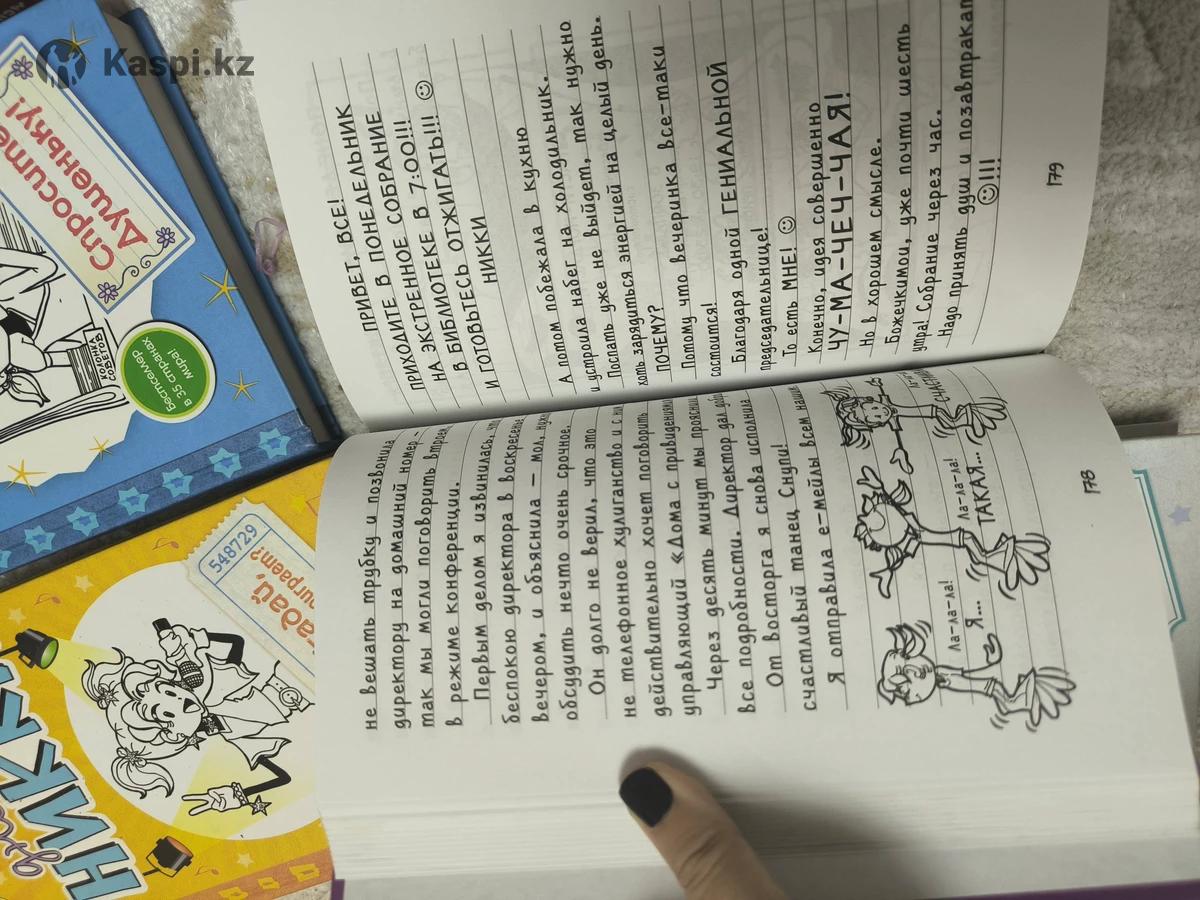 Kaspi.kz
Спросите
Душеньку!
КОЛОНКА
СОВЕТОВ
Бестселлер
в 35 странах
мира!
548729
НИКК
не вешать трубку и позвонила
директору на домашний номер –
так мы могли поговорить втроем
в режиме конференции.
Первым делом я извинилась,
беспокою директора в воскресенье
вечером, и объяснила – мол,
обсудить нечто очень срочное.
Он долго не верил, что это
не телефонное хулиганство и с
действительно хочет поговорить
управляющий «Дома с привидениями
Через десять минут мы прояснили
все подробности. Директор дал
От восторга я снова исполнила
счастливый танец Снупи!
Я отправила е-мейлы всем нашим
Ла-ла-ла!
Я...
Ла-ла-ла!
ТАКАЯ...
178
ПРИВЕТ, ВСЕ!
ПРИХОДИТЕ В ПОНЕДЕЛЬНИК
НА ЭКСТРЕННОЕ СОБРАНИЕ
В БИБЛИОТЕКЕ В 7:00!!!
И ГОТОВЬТЕСЬ ОТЖИГАТЬ!!! ☺
НИККИ
А потом побежала в кухню
и устроила набег на холодильник.
Поспать уже не выйдет, так нужно
хоть зарядиться энергией на целый день.
ПОЧЕМУ?
Потому что вечеринка все-таки
состоится!
Благодаря одной ГЕНИАЛЬНОЙ
председательнице!
То есть МНЕ! ☺
Конечно, идея совершенно
ЧУ-МА-ЧЕЧ-ЧАЯ!
Но в хорошем смысле.
Божечкимои, уже почти шесть
утра! Собрание через час.
Надо принять душ и позавтракать
☺!!!
179